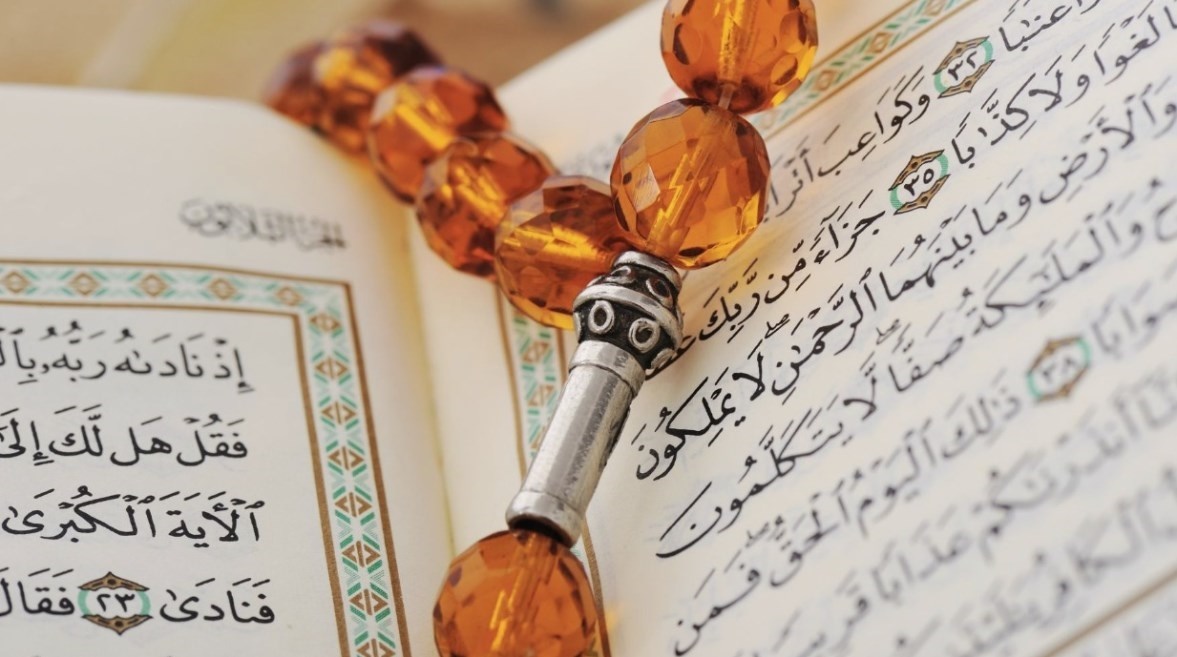 وَأَعْنَٰبًا ٣٢ وَكَوَاعِبَ
لَغْوًا وَلَا كِذَّٰبًا ٣٥ جَزَآءً مِّن رَّبِّكَ
وَٱلْأَرْضِ وَمَا بَيْنَهُمَا ٱلرَّحْمَٰنِ ۖ لَا يَمْلِكُونَ
وَٱلْمَلَٰٓئِكَةُ صَفًّا ۖ لَّا يَتَكَلَّمُونَ
صَوَابًا ٣٨ ذَٰلِكَ ٱلْيَوْمُ ٱلْحَقُّ ۖ فَمَن
أَنذَرْنَٰكُمْ عَذَابًا
ٱلْكَافِرُ
الجزء الثلاثون
إِذْ نَادَىٰهُ رَبُّهُۥ
فَقُلْ هَل لَّكَ إِلَىٰٓ
ٱلْأٓيَةَ ٱلْكُبْرَىٰ
فَنَادَىٰ ٢٣ فَقَالَ